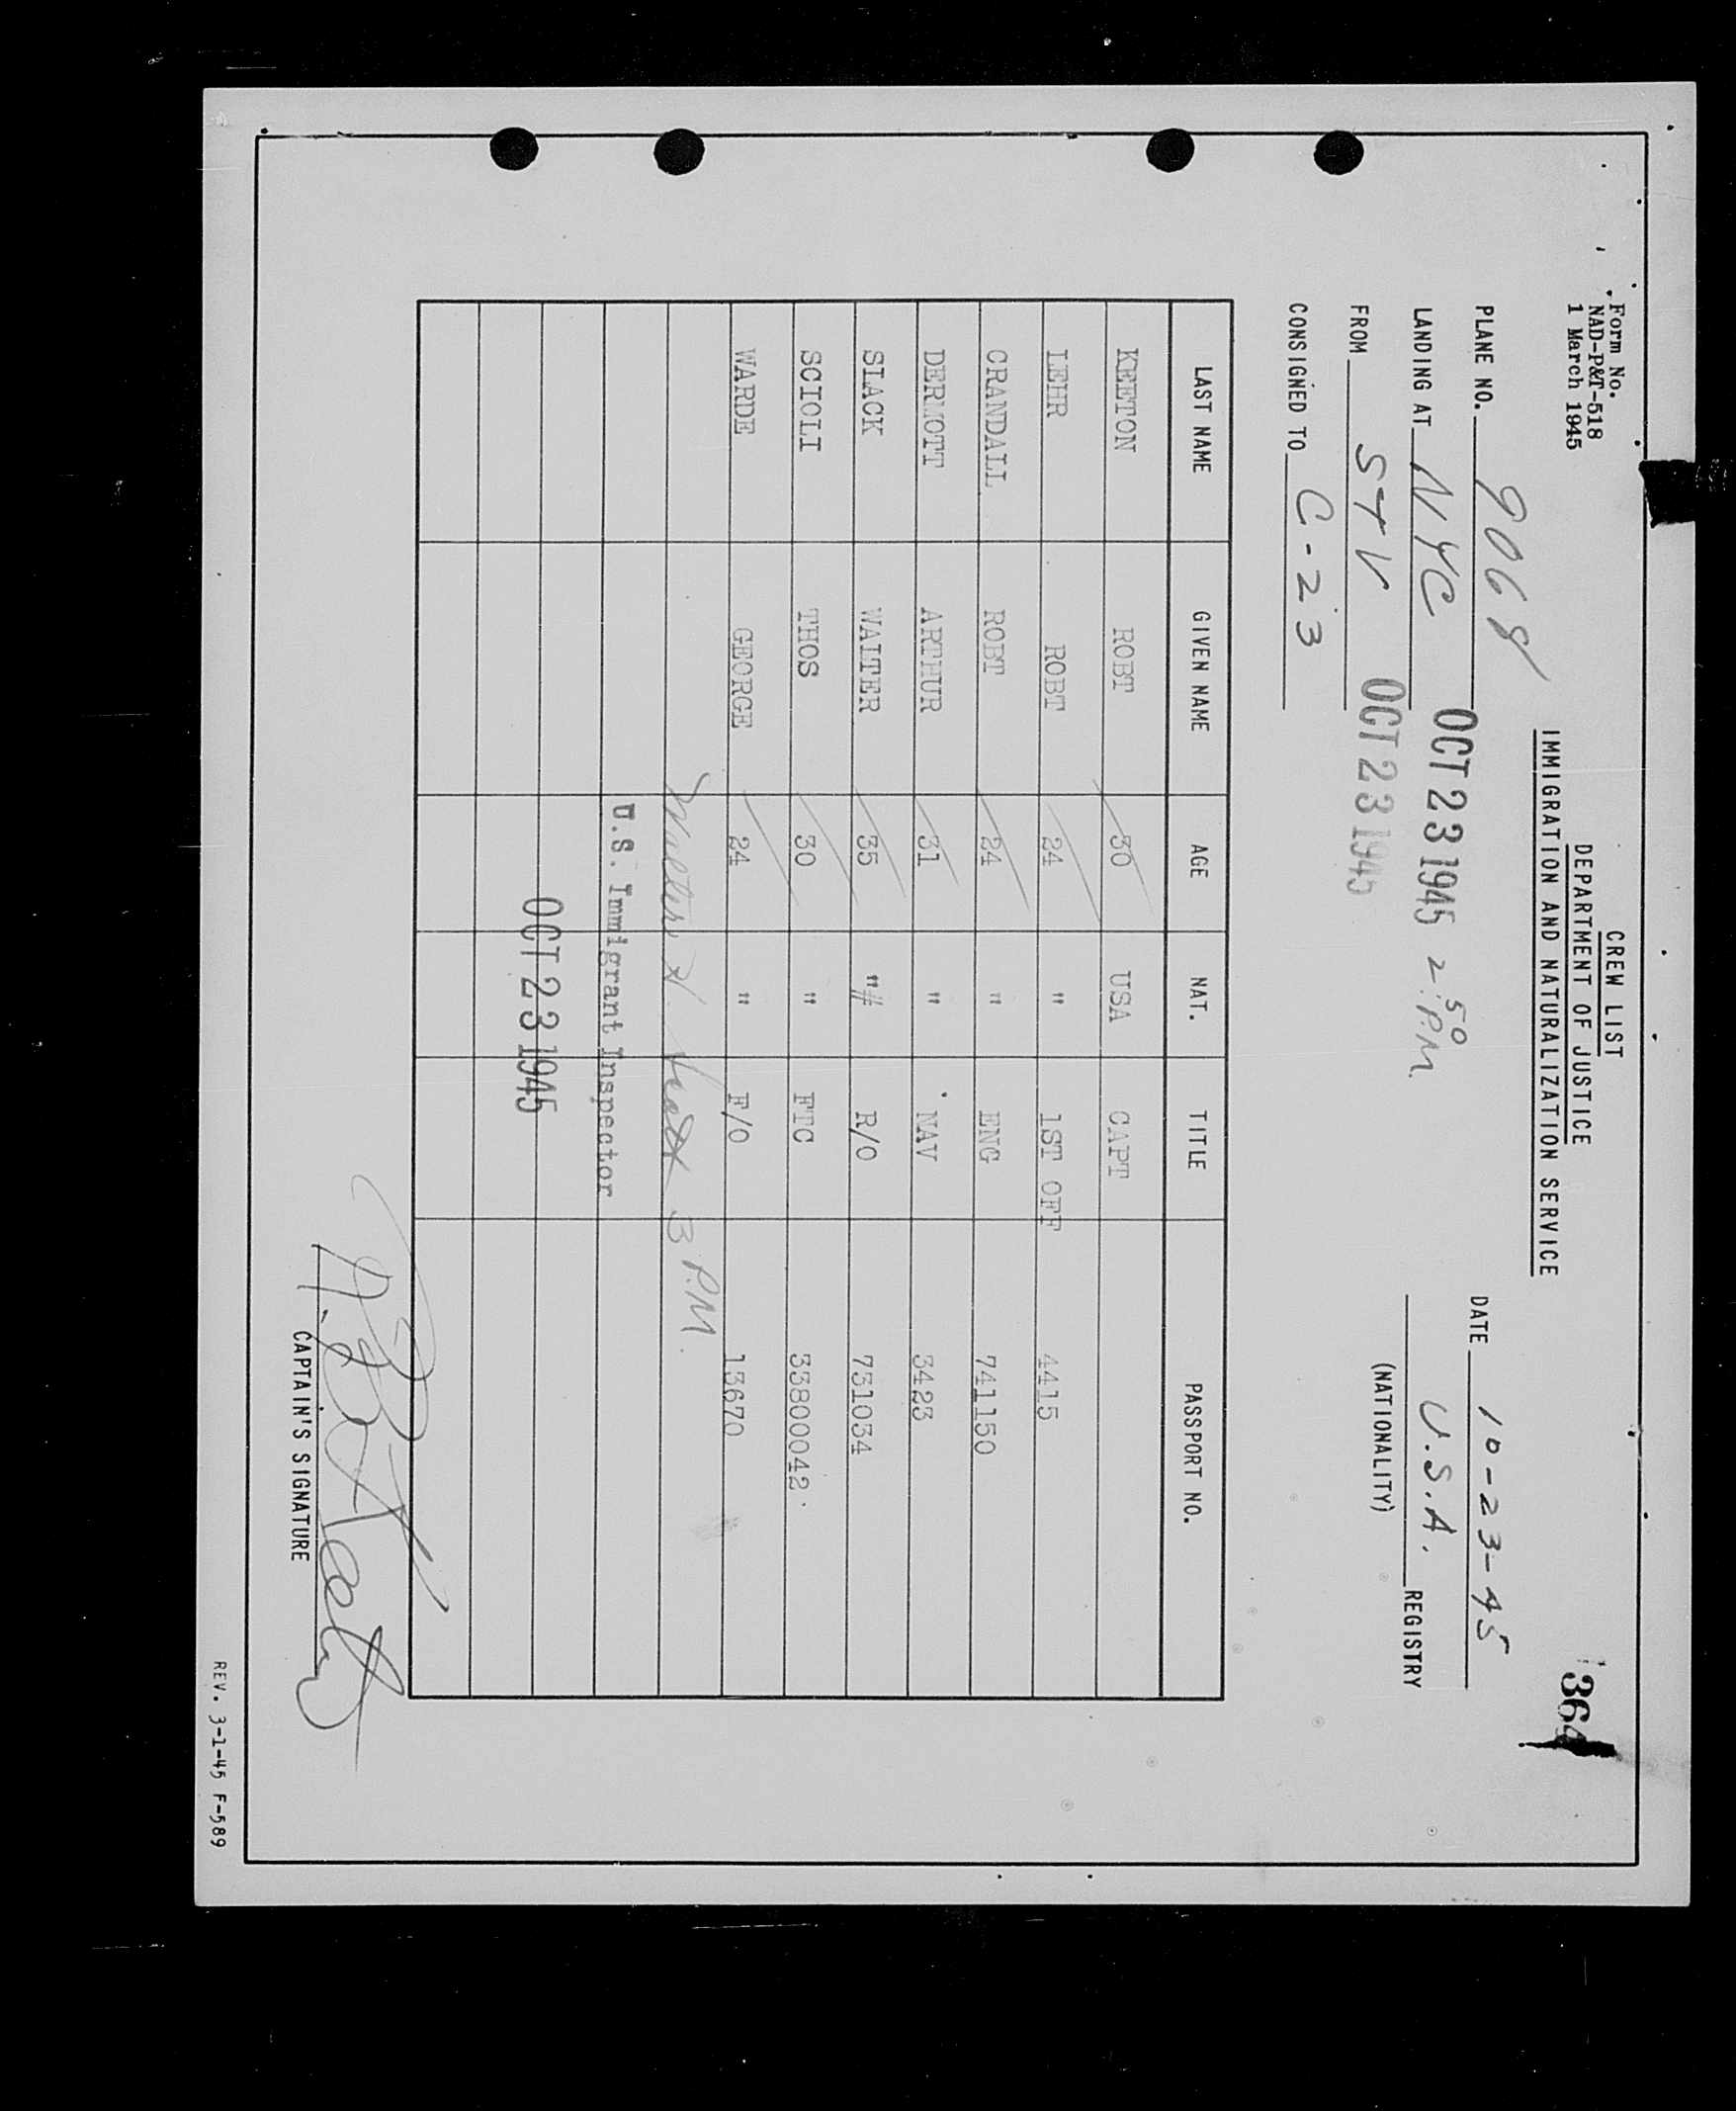 Form No.
NAD-P&T-518
1 March 1945
CREW LIST
DEPARTMENT OF JUSTICE
IMMIGRATION AND NATURALIZATION SERVICE
364
PLANE NO. 9068
DATE 10-23-45
LANDING AT NYC OCT 23 1945 2:50 P.M.
U.S.A. REGISTRY
(NATIONALITY)
FROM STV OCT 23 1945
CONSIGNED TO C-23
LAST NAME GIVEN NAME AGE NAT. TITLE PASSPORT NO.
KEETON ROBT 30 USA CAPT
LEHR ROBT 24 " 1ST OFF 4415
CRANDALL ROBT 24 " ENG 741150
DERMOTT ARTHUR 31 " NAV 3423
SLACK WALTER 35 "# R/O 731034
SCIOLI THOS 30 " FTC 33800042.
WARDE GEORGE 24 " F/O 13670
3 P.M.
U.S. Immigrant Inspector
OCT 23 1945
CAPTAIN'S SIGNATURE
REV. 3-1-45 F-589